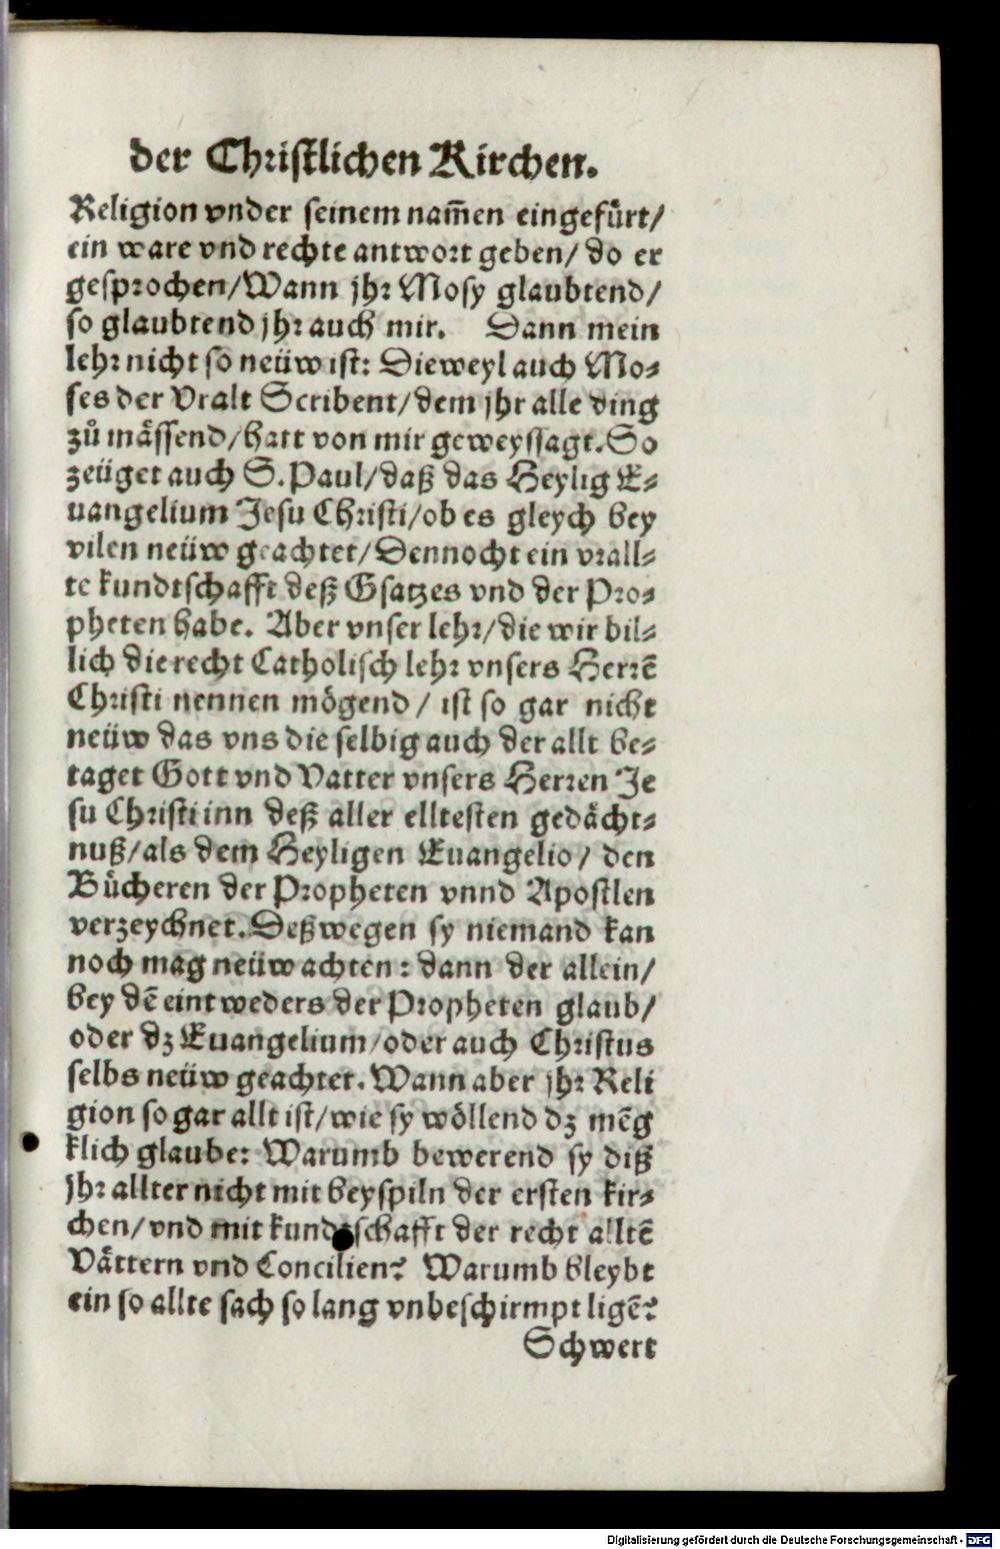 der Christlichen Kirchen.
Religion vnder seinem nam̃en eingefürt/
ein ware vnd rechte antwort geben/ do er
gesprochen/Wann jhr Mosy glaubtend/
so glaubtend jhr auch mir. Dann mein
lehr nicht so neüw ist: Dieweyl auch Mo⸗
ses der Vralt Scribent/dem jhr alle ding
zů mässend/hatt von mir geweyssagt. So
zeüget auch S. Paul/daß das Heylig E⸗
uangelium Jesu Christi/ob es gleych bey
vilen neüw geachtet/Dennocht ein vrall⸗
te kundtschafft deß Gsatzes vnd der Pro⸗
pheten habe. Aber vnser lehr/die wir bil⸗
lich die recht Catholisch lehr vnsers Herrẽ
Christi nennen mögend/ ist so gar nicht
neüw das vns die selbig auch der allt be⸗
taget Gott vnd Vatter vnsers Herren Je
su Christi inn deß aller elltesten gedächt⸗
nuß/als dem Heyligen Euangelio/ den
Bücheren der Propheten vnnd Apostlen
verzeychnet. Deßwegen sy niemand kan
noch mag neüw achten: dann der allein/
bey dẽ eintweders der Propheten glaub/
oder dz Euangelium/oder auch Christus
selbs neüw geachtet. Wann aber jhr Reli
gion so gar allt ist/wie sy wöllend dz mẽg
klich glaube: Warumb bewerend sy diß
jhr allter nicht mit beyspiln der ersten kir⸗
chen/vnd mit kundtschafft der recht alltẽ
Vättern vnd Concilien? Warumb bleybt
ein so allte sach so lang vnbeschirmpt ligẽ?
Schwert
Digitalisierung gefördert durch die Deutsche Forschungsgemeinschaft - DFG